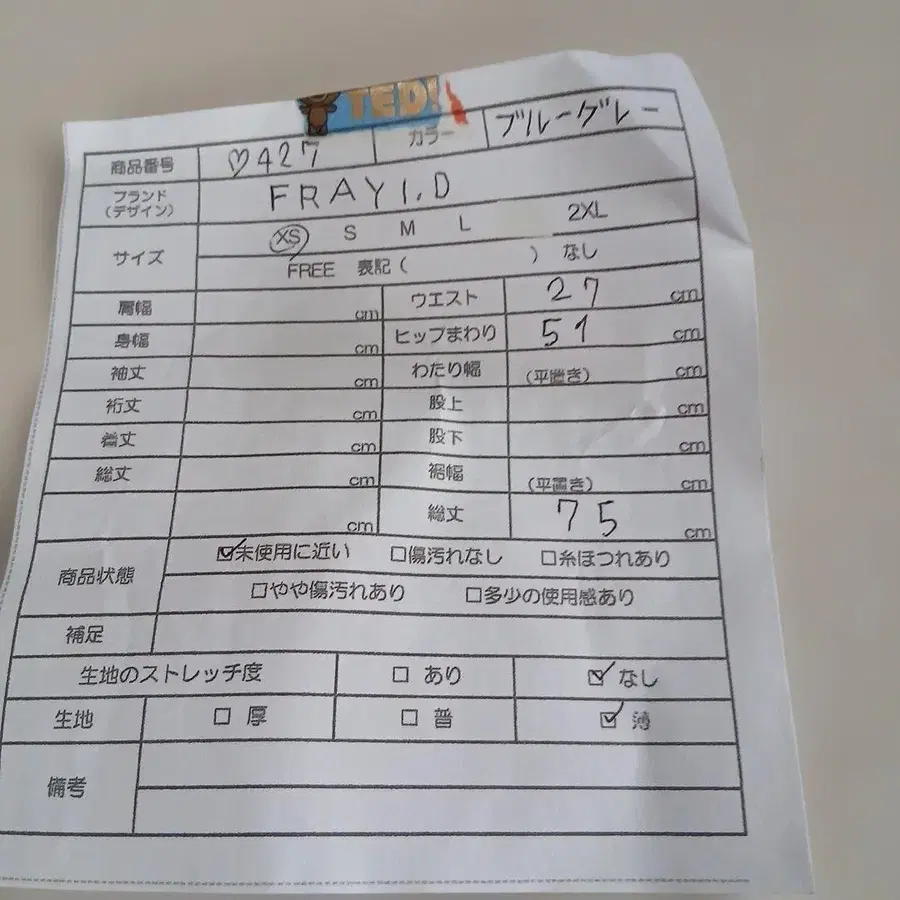 TED!
商品番号 ♡427 カラー ブルーグレー
ブランド
(デザイン) FRAY I.D
サイズ XS S M L 2XL
FREE 表記( ) なし
肩幅 cm ウエスト 27 cm
身幅 cm ヒップまわり 51 cm
袖丈 cm わたり幅 (平置き) cm
裄丈 cm 股上 cm
着丈 cm 股下 cm
総丈 cm 裾幅 (平置き) cm
cm 総丈 75 cm
商品状態 ☑未使用に近い □傷汚れなし □糸ほつれあり
□やや傷汚れあり □多少の使用感あり
補足
生地のストレッチ度 □ あり ☑ なし
生地 □ 厚 □ 普 ☑ 薄
備考